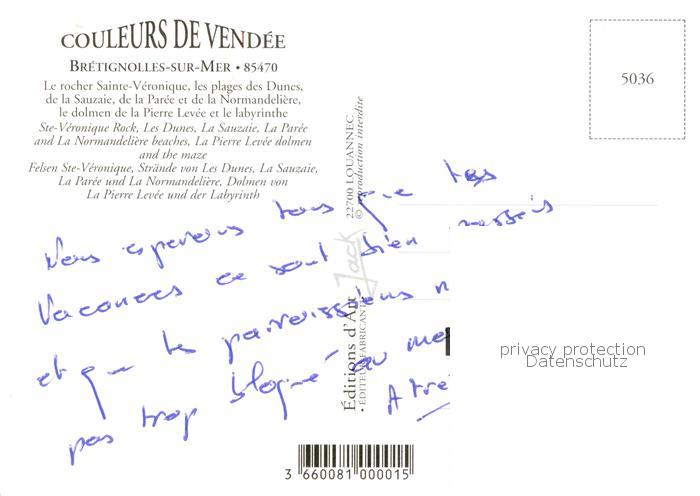 COULEURS DE VENDÉE
BRÉTIGNOLLES-SUR-MER • 85470
Le rocher Sainte-Véronique, les plages des Dunes,
de la Sauzaie, de la Parée et de la Normandelière,
le dolmen de la Pierre Levée et le labyrinthe
Ste-Véronique Rock, Les Dunes, La Sauzaie, La Parée
and La Normandelière beaches, La Pierre Levée dolmen
and the maze
Felsen Ste-Véronique, Strände von Les Dunes, La Sauzaie,
La Parée und La Normandelière, Dolmen von
La Pierre Levée und der Labyrinth
5036
22700 LOUANNEC
© reproduction interdite
Jack
Éditions d'Art
• ÉDITEUR FABRICANT
Nous esperons tous que tes
Vacances ce sont bien passeés
et que les paroissiens n
pas trop bloqué au me
A tre
privacy protection
Datenschutz
3 660081 000015